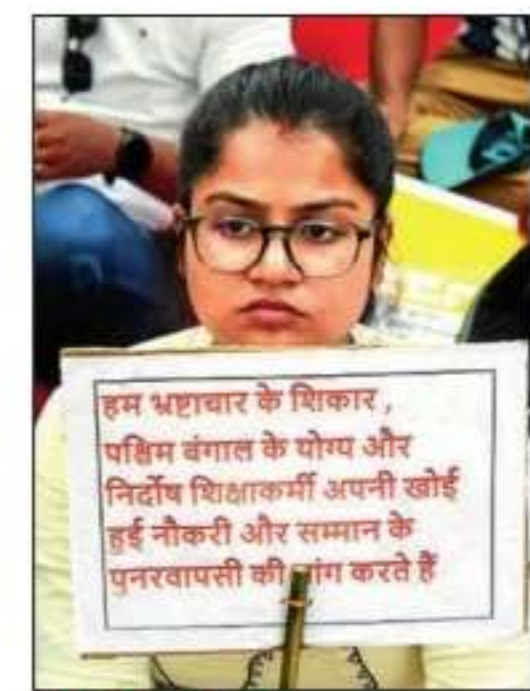 हम भ्रष्टाचार के शिकार,
पश्चिम बंगाल के योग्य और
निर्दोष शिक्षाकर्मी अपनी खोई
हुई नौकरी और सम्मान के
पुनरवापसी की मांग करते हैं